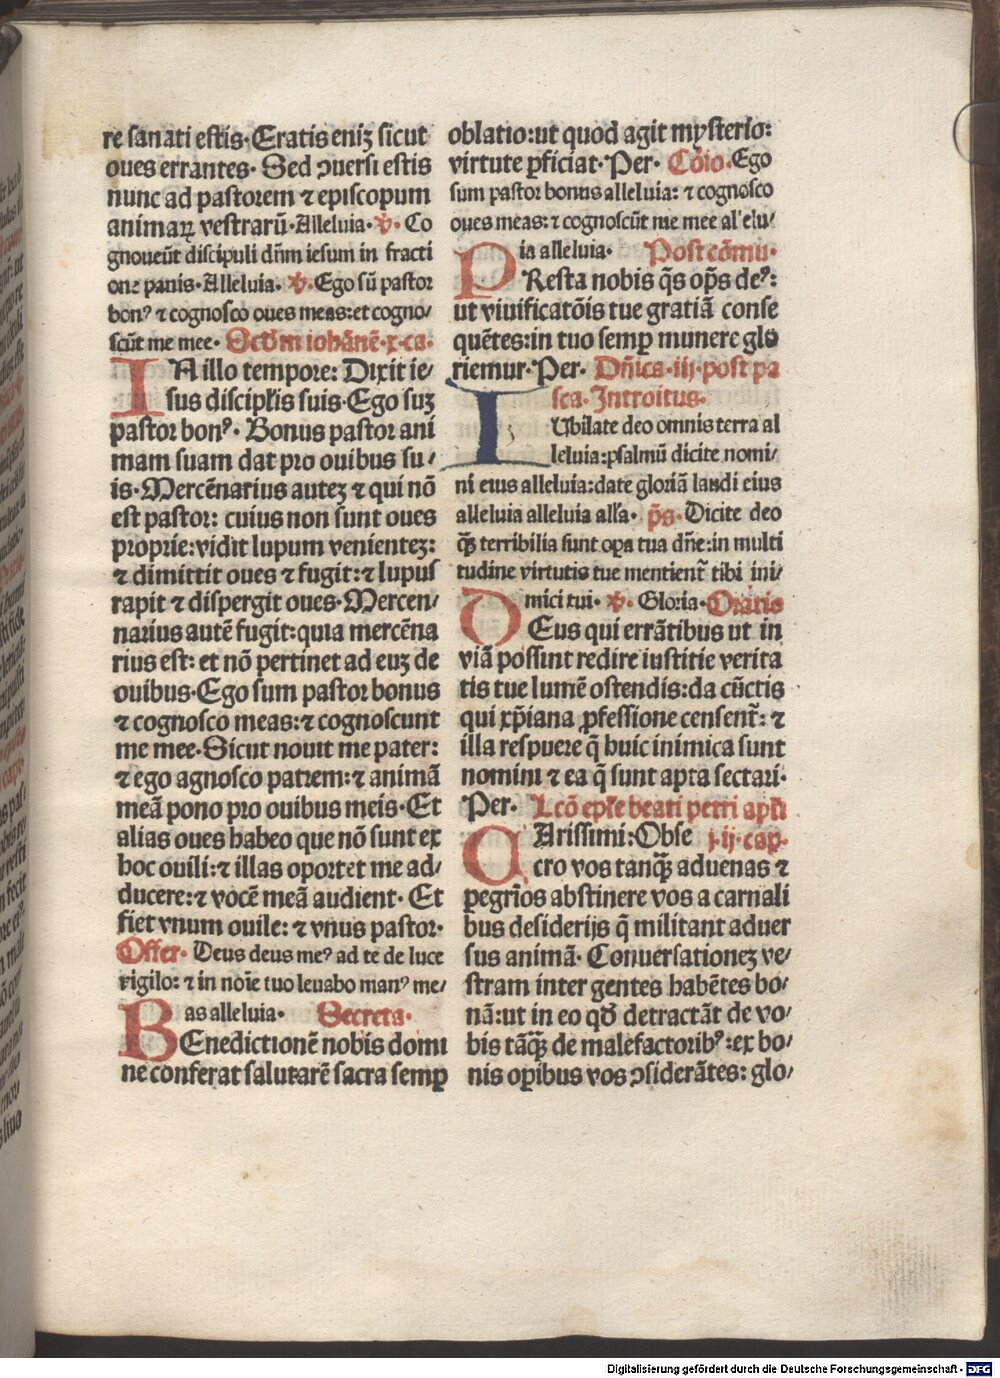 re sanati estis·Eratis eniʒ sicut
oues errantes· Sed ↄuersi estis
nunc ad pastorem ⁊ episcopum
animaꝝ vestrarū·Alleluia· ℣· Co
gnoueūt discipuli dn̄m iesum in fracti
one panis·Alleluia· ℣·Ego sū pastor
bonꝰ ⁊ cognosco oues meas:et cogno/
scūt me mee· Scd̄m iohānē·x·ca·
IN illo tempore: Dixit ie/
sus discipl̄is suis·Ego suʒ
pastor bonꝰ· Bonus pastor ani
mam suam dat pro ouibus su/
is·Mercēnarius auteʒ ⁊ qui nō
est pastor: cuius non sunt oues
proprie:vidit lupum venienteʒ:
⁊ dimittit oues ⁊ fugit:⁊ lupus
rapit ⁊ dispergit oues·Mercen/
narius autē fugit:quia mercēna
rius est: et nō pertinet ad euʒ de
ouibus·Ego sum pastor bonus
⁊ cognosco meas:⁊ cognoscunt
me mee·Sicut nouit me pater:
⁊ ego agnosco patrem:⁊ animā
meā pono pro ouibus meis·Et
alias oues habeo que nō sunt ex
hoc ouili:⁊ illas oportet me ad/
ducere:⁊ vocē meā audient· Et
fiet vnum ouile: ⁊ vnus pastor·
Offer· Deus deus meꝰ ad te de luce
vigilo: ⁊ in noīe tuo leuabo manꝰ me/
as alleluia· Secreta·
BEnedictionē nobis domi
ne conferat salutarē sacra semꝑ
oblatio:ut quod agit mysterio:
virtute ꝑficiat·Per· Cōio·Ego
sum pastor bonus alleluia: ⁊ cognosco
oues meas:⁊ cognoscūt me mee al'elu/
ia alleluia· Postcōmu·
PResta nobis q̄s op̄s deꝰ:
ut viuificatōis tue gratiā conse
quētes:in tuo semꝑ munere glo
riemur·Per· Dn̄ica·iij·post pa
sca·Introitus·
IUbilate deo omnis terra al
leluia:psalmū dicite nomi/
ni eius alleluia:date gloriā laudi eius
alleluia alleluia all'a· p̄s·Dicite deo
q̄ʒ terribilia sunt oꝑa tua dn̄e:in multi
tudine virtutis tue mentient᷑ tibi ini/
mici tui· ℣· Gloria·Oratio
DEus qui errātibus ut in
viā possint redire iustitie verita
tis tue lumē ostendis:da cūctis
qui xp̄iana ꝓfessione censent᷑: ⁊
illa respuere q̄ huic inimica sunt
nomini ⁊ ea q̄ sunt apta sectari·
Per· Lcō epl̄e beati petri apl̄i
CArissimi:Obse j·ij·cap·
cro vos tanq̄ʒ aduenas ⁊
ꝑegrīos abstinere vos a carnali
bus desiderijs q̄ militant aduer
sus animā· Conuersationeʒ ve/
stram inter gentes habētes bo/
nā:ut in eo qd̄ detractāt de vo/
bis tāq̄ʒ de malefactoribꝰ:ex bo/
nis oꝑibus vos ↄsiderātes: glo/
Digitalisierung gefördert durch die Deutsche Forschungsgemeinschaft · DFG